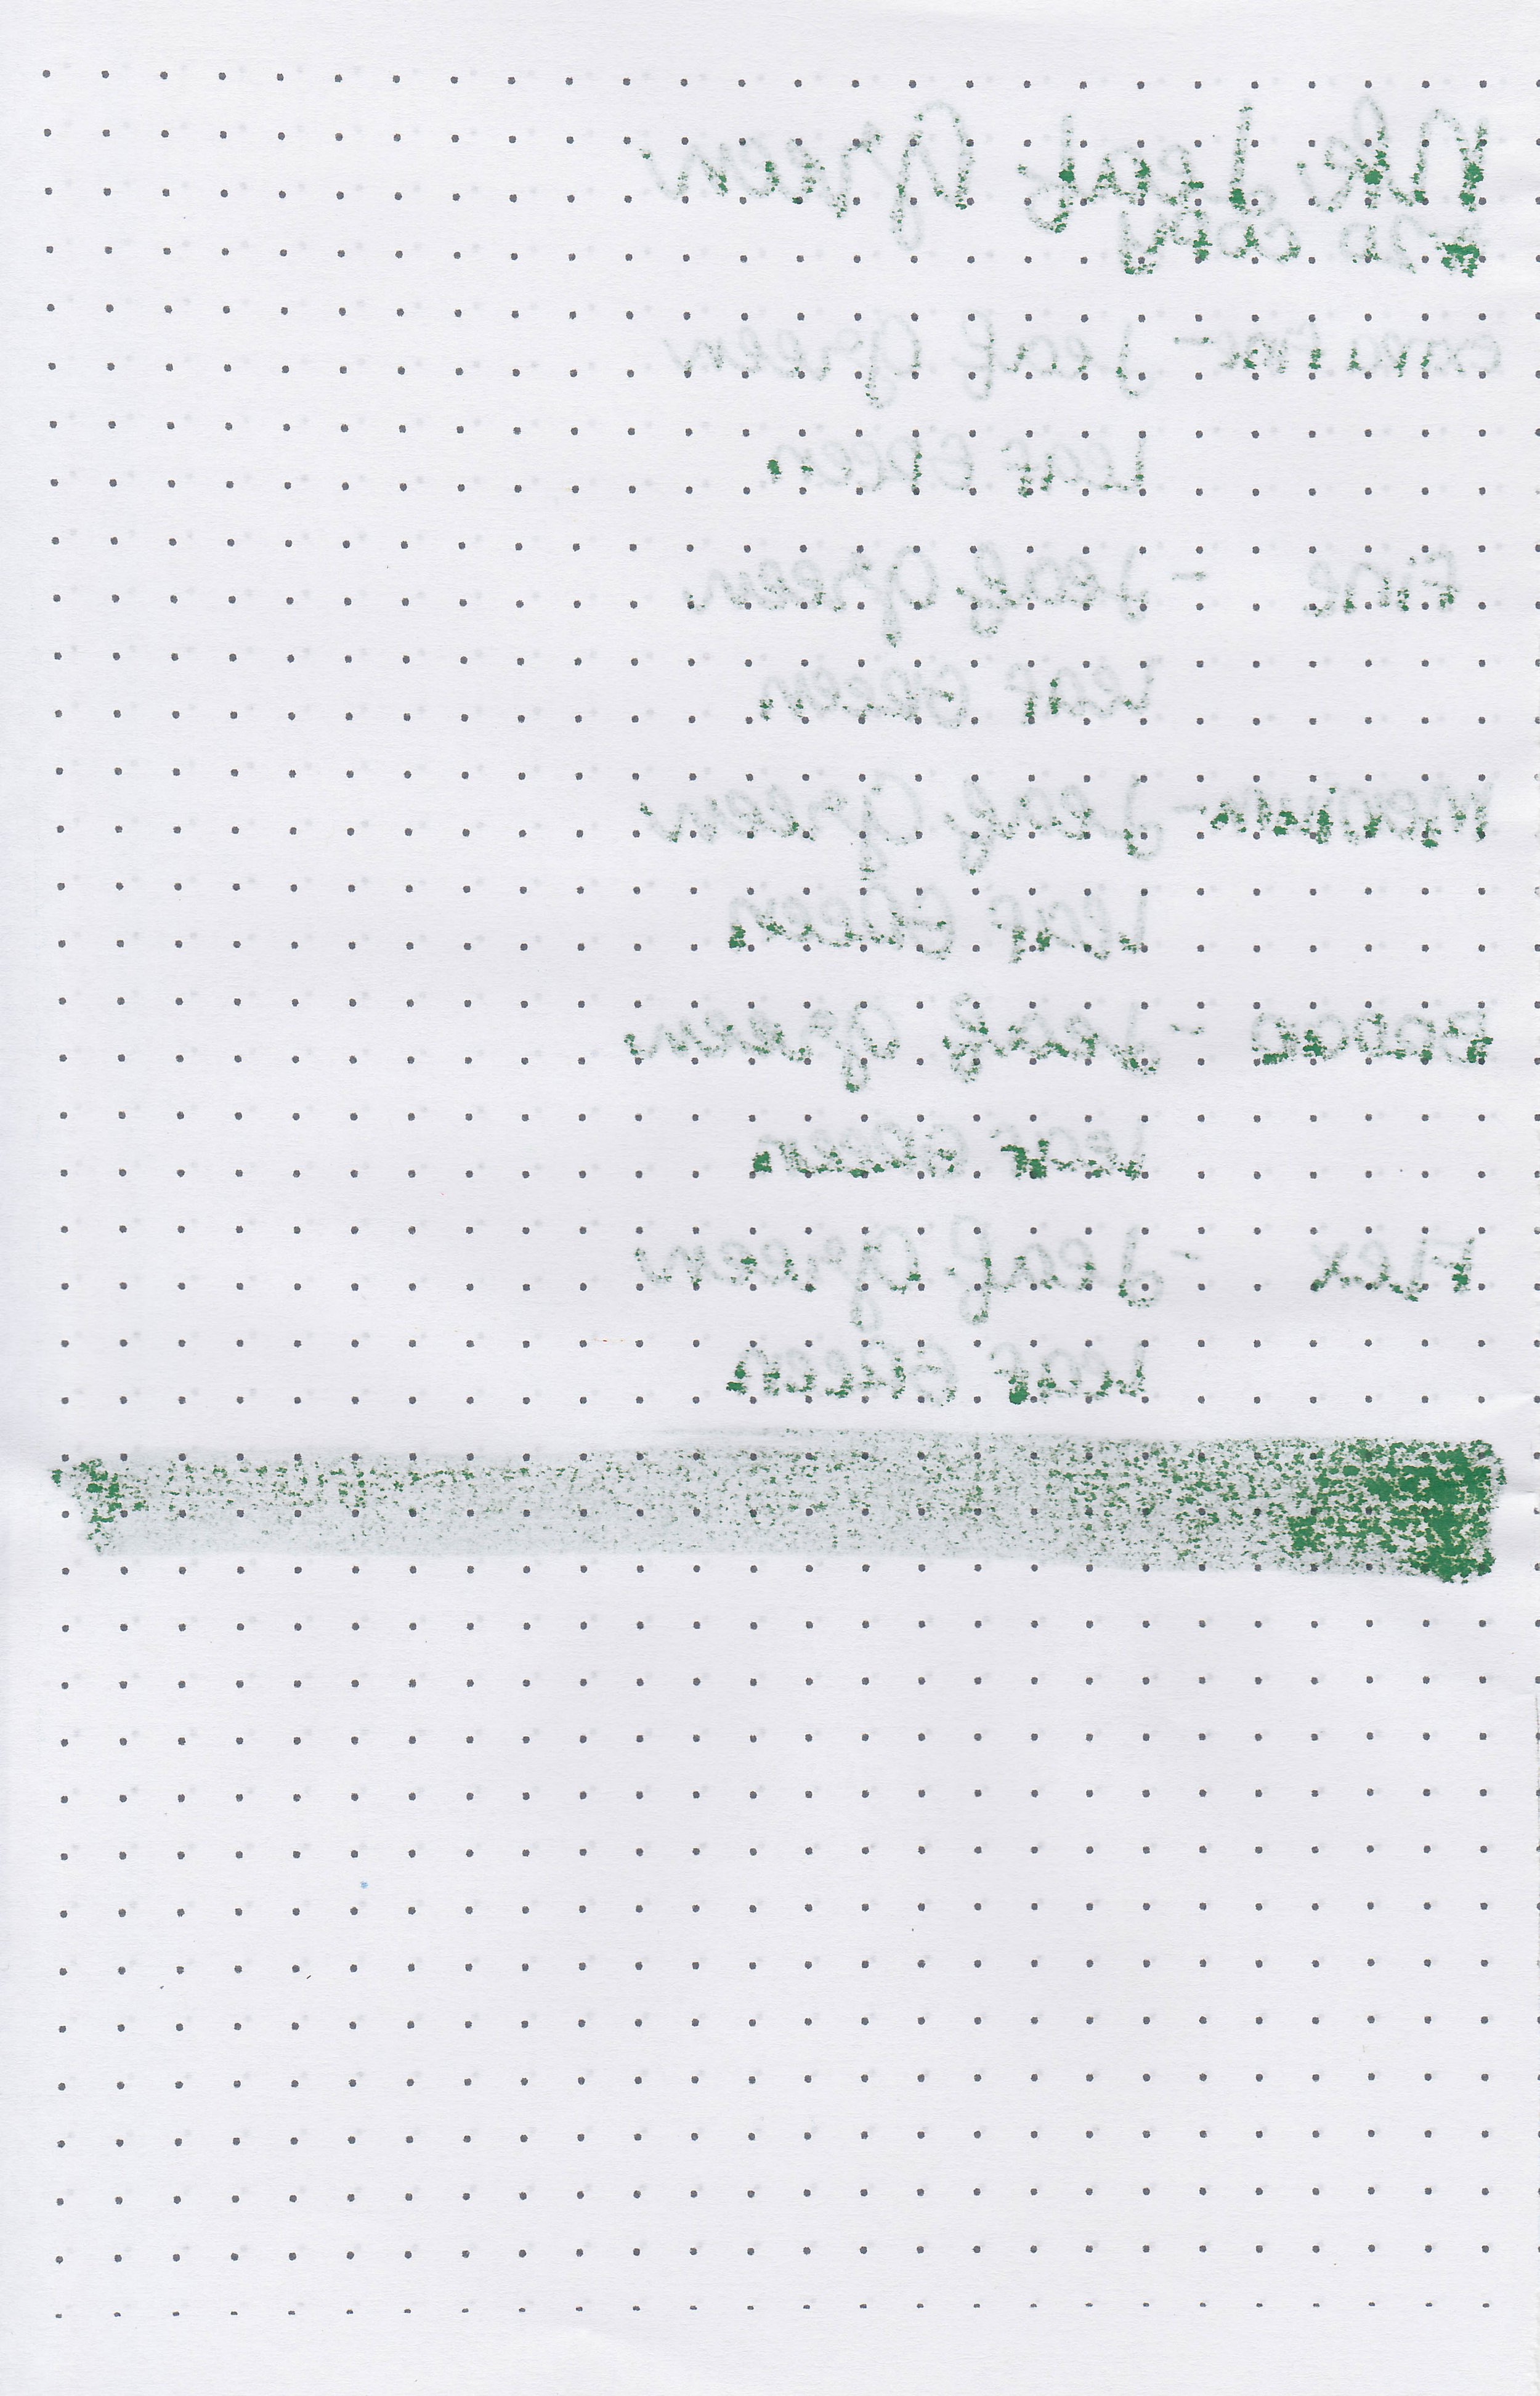 Leaf Green
20 copy
Extra Fine - Leaf Green
Leaf Green
Fine - Leaf Green
Leaf Green
Medium - Leaf Green
Leaf Green
Broad - Leaf Green
Leaf Green
Flex - Leaf Green
Leaf Green